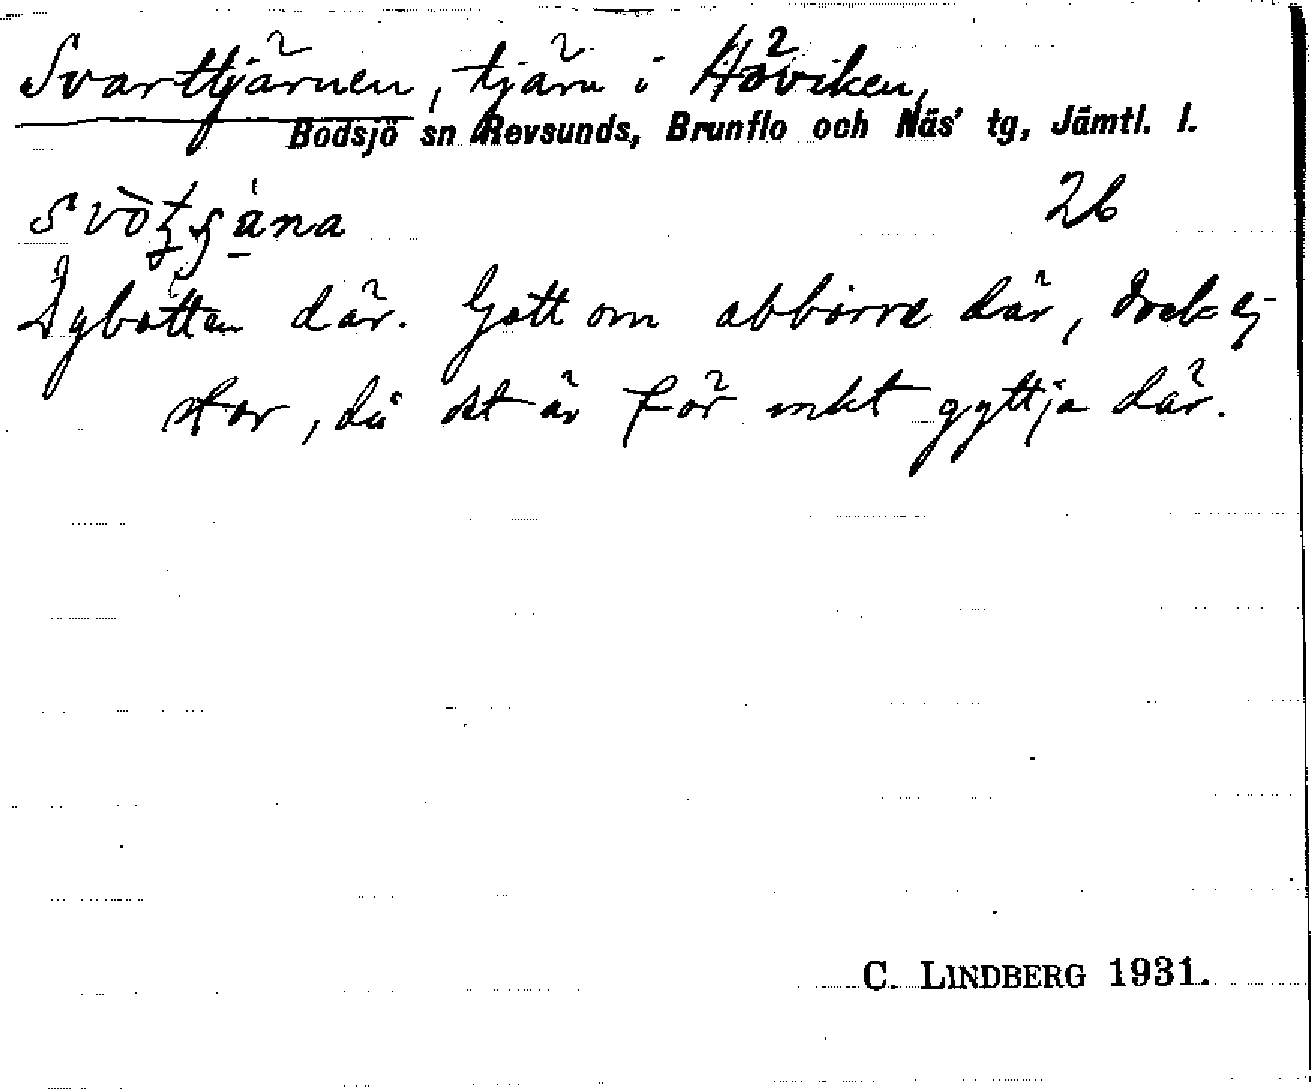 Svarttjärnen, tjärn i Höviken,
Bodsjö sn Revsunds, Brunflo och Näs' tg, Jämtl. l.
26
Dybotten där. Gott om abborre där, dock ej
stor, då det är för mkt gyttja där.
C. LINDBERG 1931.